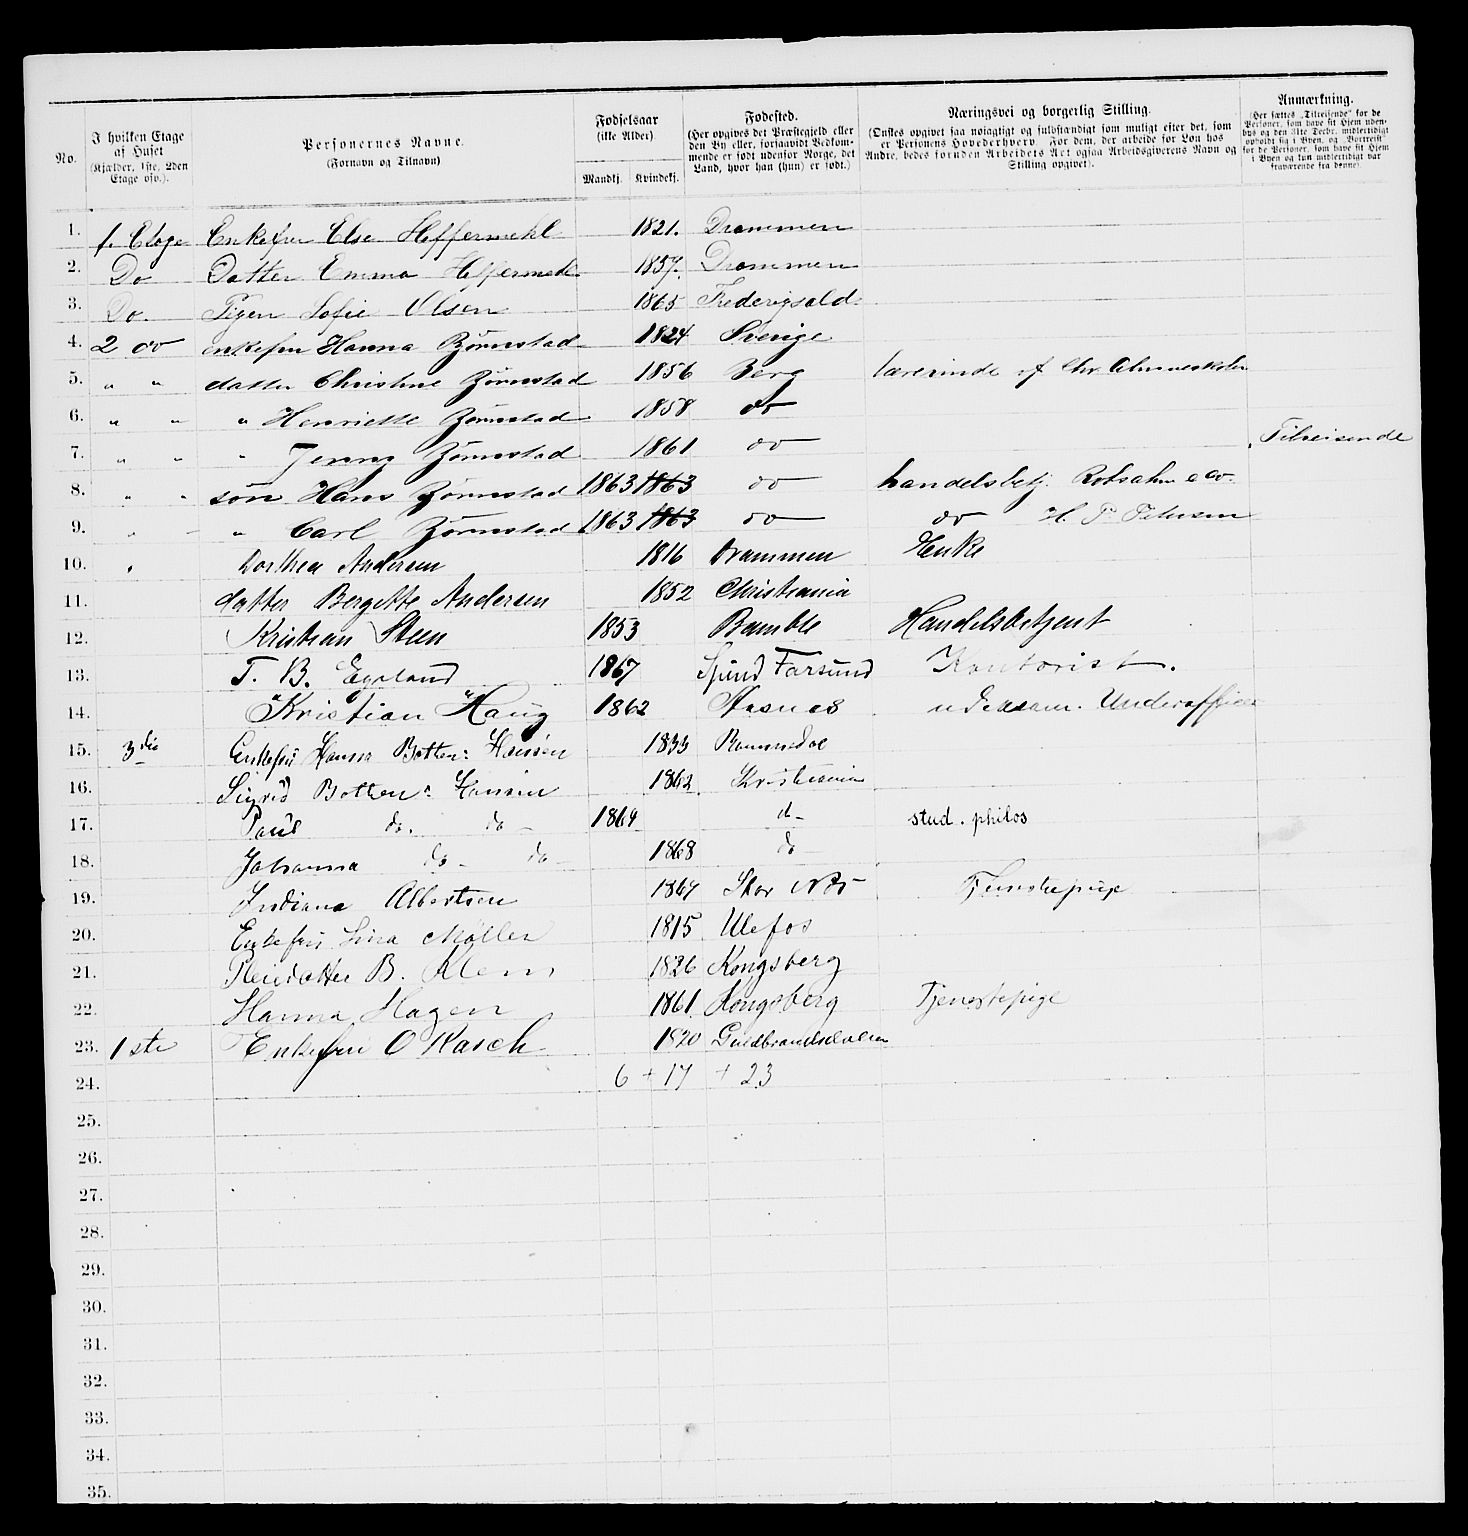 No. | I hvilken Etage af Huset (Kjælder, 1ste, 2den Etage osv.). | Personernes Navne. (Fornavn og Tilnavn) | Fødselsaar (ikke Alder). Mandkj. Kvindekj. | Fødested. (Her opgives det Præstegjeld eller den By eller, forsaavidt Vedkommende er født udenfor Norge, det Land, hvor han (hun) er født.) | Næringsvei og borgerlig Stilling. (Ønskes opgivet saa nøiagtigt og fuldstændigt som muligt efter det, som er Personens Hovederhverv. For dem, der arbeide for Løn hos Andre, bedes foruden Arbeidets Art ogsaa Arbeidsgiverens Navn og Stilling opgivet). | Anmærkning. (Her sættes „Tilreisende" for de Personer, som have sit Hjem udenbys og den 31te Decbr. midlertidigt opholdt sig i Byen, og „Bortreist" for de Personer, som have sit Hjem i Byen og kun midlertidigt var fraværende fra denne).
1. 1. Etage Enkefru Else Heffermehl 1821. Drammen
2. Do Datter Emma Heffermehl 1857. Drammen
3. Do. Pigen Sofie Olsen 1865 Frederigsald
4. 2 do enkefru Hanna Bjørnstad 1824 Sverige
5. " " datter Christine Bjørnstad 1856 Berg lærerinde
6. " " " Henriette Bjørnstad 1858 do
7. " " " Jenny Bjørnstad 1861 do Tilreisende
8. " " søn Hans Bjørnstad 1863 1863 do handelsbetj. Robsahm & co.
9. " " " Carl Bjørnstad 1863 1863 do do H. P. Petersen
10. " Dorthea Andersen 1816 Drammen Enke
11. datter Bergitte Andersen 1852 Christiania
12. Kristian Steen 1853 Bamble Handelsbetjent
13. T. B. Egeland 1867 Spind Farsund Kontorist.
14. "Kristian "Haug 1862 Aasnes Underofficer
15. 3die Enkefru Hanna Botten: Hansen 1833 Romsdal
16. Sigrid Botten: Hansen 1862 Kristiania
17. Paul do. do 1869 d- stud. philos
18. Johanna do - do - 1868 do
19. Indiana Albertsen 1867 Tjenstepige
20. Enkefru Lina Møller 1815 Ulefos
21. Pleiedatter B. Klem 1826 Kongsberg
22. Hanna Hagen 1861 Kongsberg Tjenestepige
23. 1ste Enkefru O Rasch 1820 Guldbrandsdalen
24. 6 + 17 + 23
25.
26.
27.
28.
29.
30.
31.
32.
33.
34.
35.